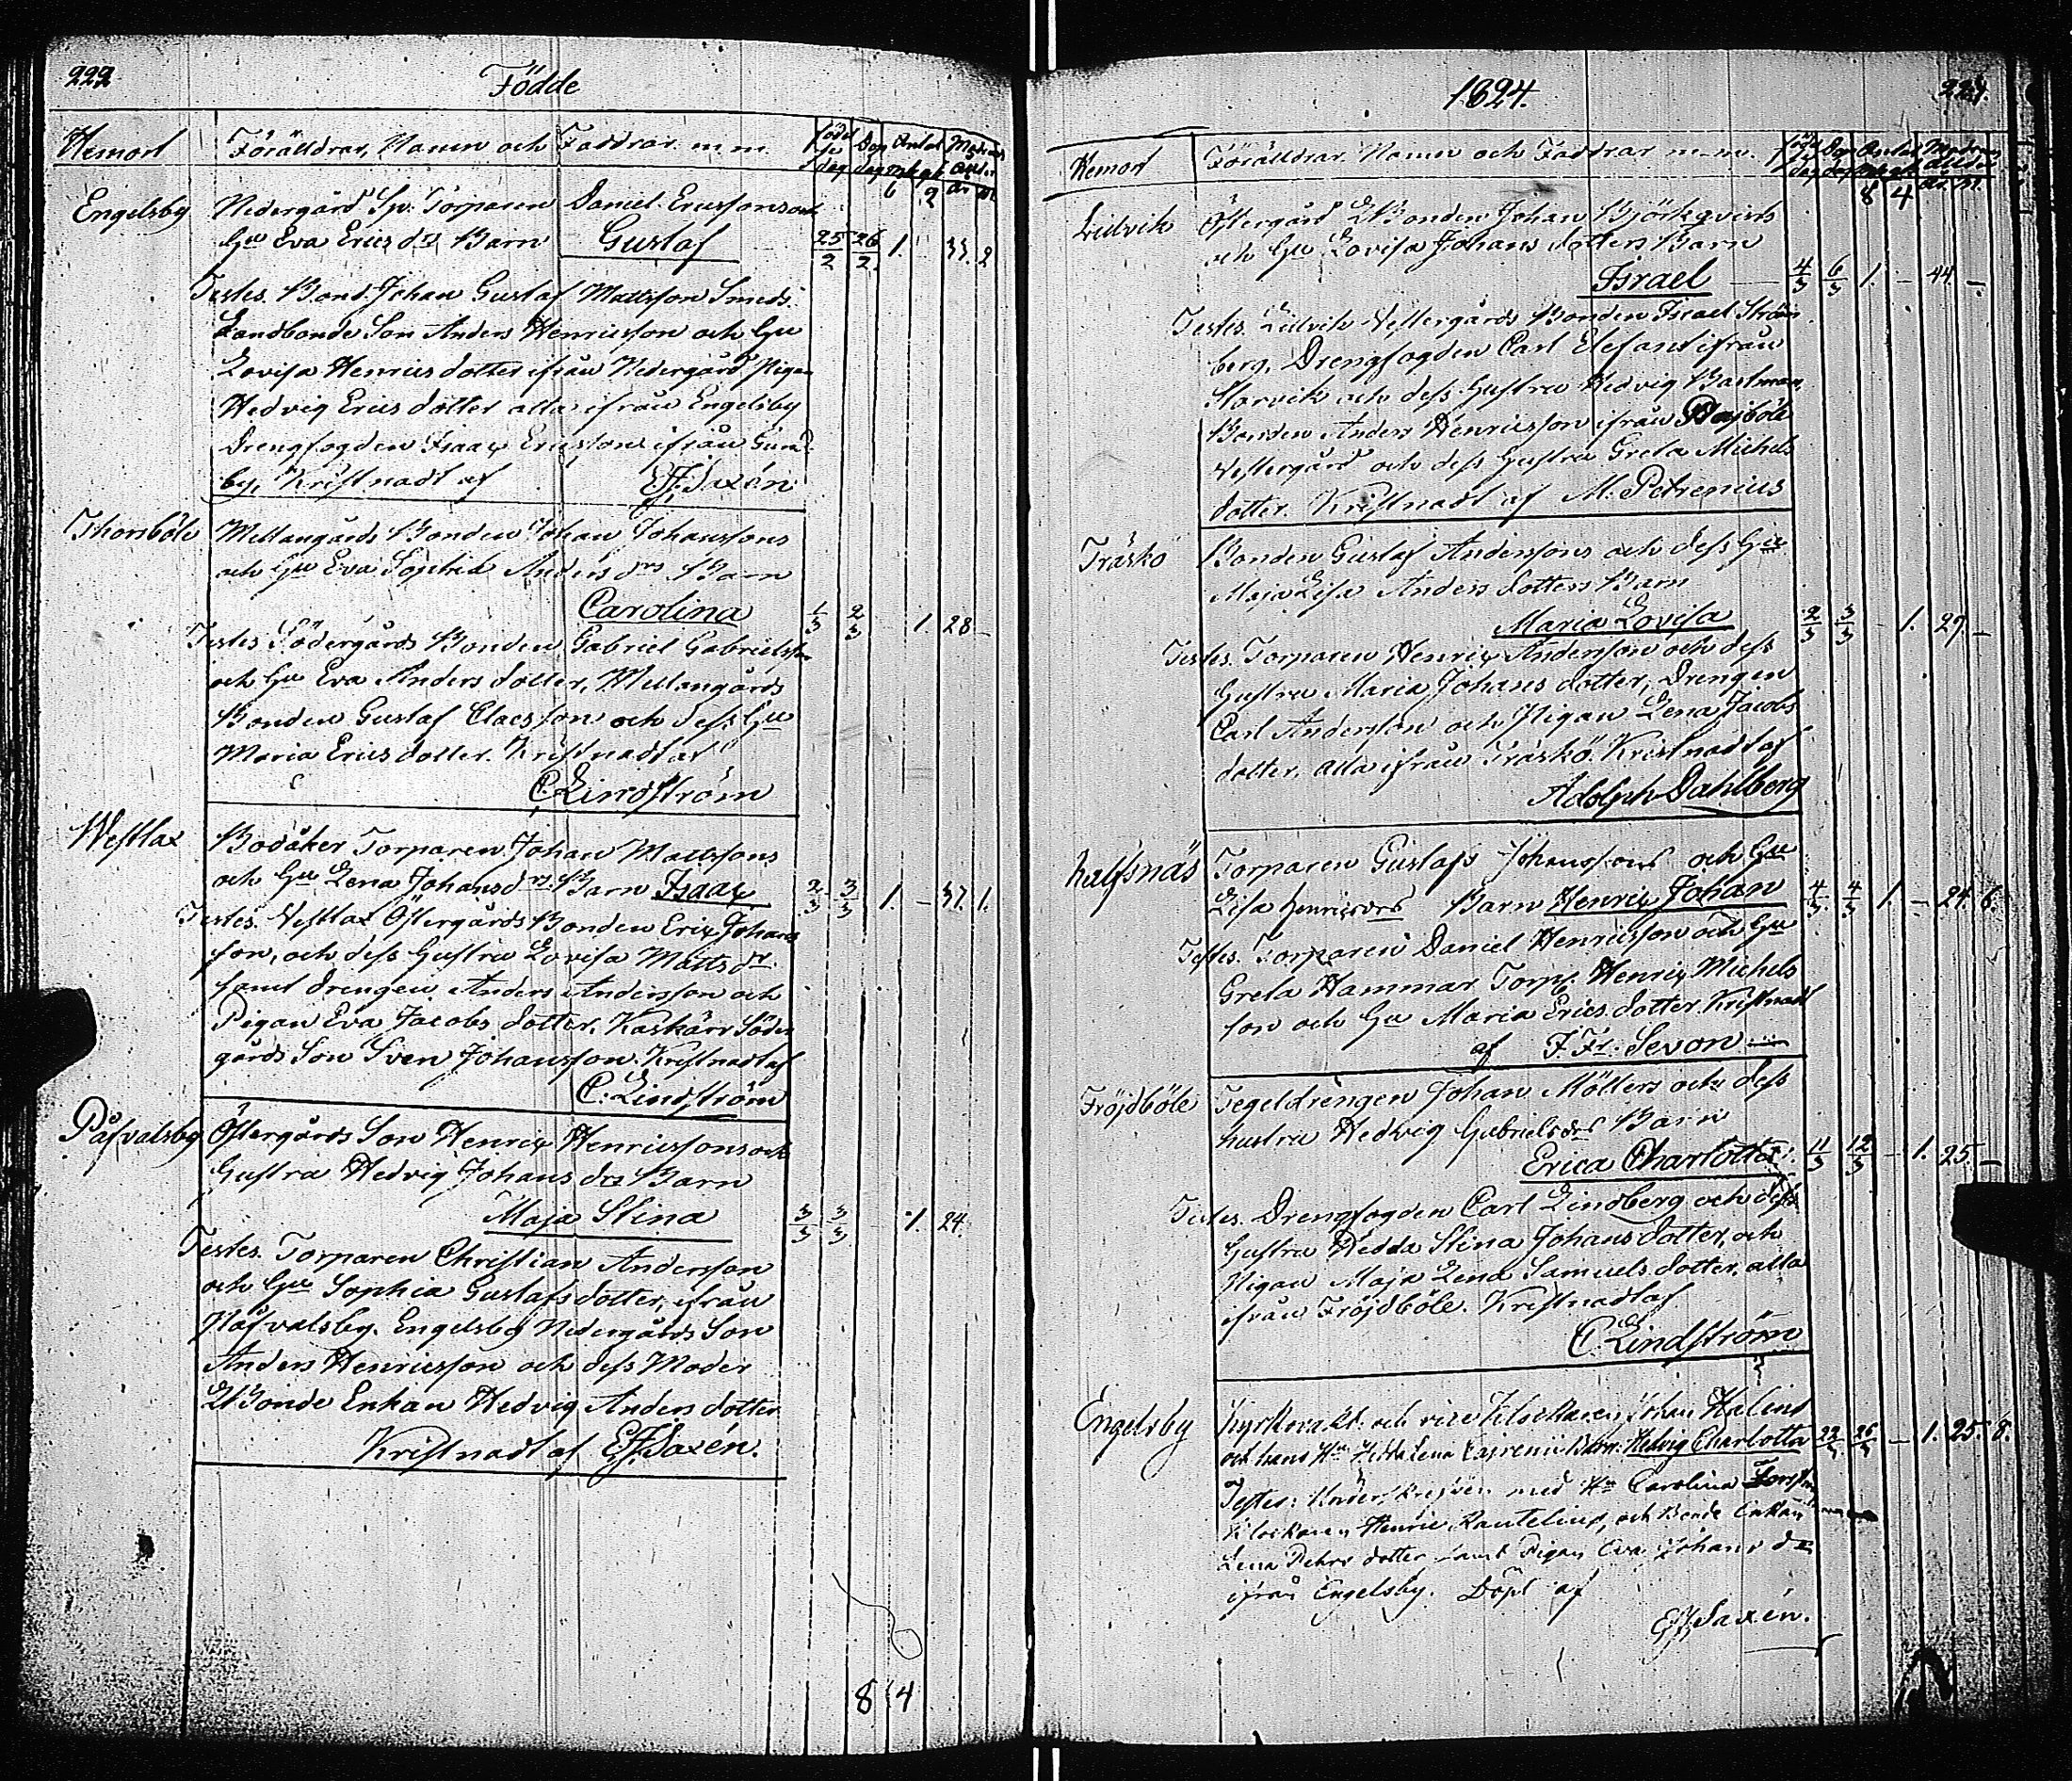 222
Födde
Hemort Föräldrar, Namn och Faddrar m.m. född dag Dop dag Antal Modrens Ålder
6 2
Engelsby Nedergård Sp. Torparen Daniel Ericssons och
Hu Eva Erics dr Barn Gustaf 25/2 26/2 1. 33. 2
Testes. Bond. Johan Gustaf Mattsson Smeds.
Landbonde Son Anders Henricsson och Hu
Lovisa Henrics dotter ifrån Nedergård Pigan
Hedvig Erics dotter alla ifrån Engelsby
Drengfogden Isaac Ericsson ifrån
by, Kristnadt af EJ. Saxén
Thorsböle Mellangårds Bonden Johan Johanssons
och Hu Eva Sophia Anders drs Barn
Carolina 1/3 2/3 1. 28 –
Testes Södergårds Bonden Gabriel Gabrielsson
och Hu Eva Anders dotter, Mellangårds
Bonden Gustaf Claesson och dess Hu
Maria Erics dotter. Kristnadt af
C. Lindström
Westlax Bodåker Torparen Johan Mattssons
och Hu Lena Johans drs Barn Isaac 2/3 3/3 1. – 37. 1.
Testes. Vestlax Östergårds Bonden Eric Johans
son, och dess Hustru Lovisa Matts dr.
samt drengen Anders Andersson och
Pigan Eva Jacobs dotter. Kaskärr Söder
gårds Son Sven Johansson. Kristnadt af
C. Lindström
Påfvalsby Östergårds Son Henric Henricssons och
Hustru Hedvig Johans drs Barn
Maja Stina 3/3 3/3 1. 24.
Testes. Torparen Christian Andersson
och Hu Sophia Gustafs dotter, ifrån
Påfvalsby. Engelsby Nedergårds Son
Anders Henricsson och dess Moder
LBonde Enkan Hedvig Anders dotter
Kristnadt af EJ. Saxén.
8 4
1824.
Hemort Föräldrar, Namn och Faddrar m.m. född dag Dop dag Antal Modrens Ålder
8 4
Lillvik Östergård LBonden Johan Björkqvists
och Hu Lovisa Johans dotters Barn
Israel 4/3 6/3 1. – 44. –
Testes. Lillvik Vestergårds Bonden Israel Ström
berg, Drengfogden Carl Elefant ifrån
Storvik och dess Hustru Hedvig Bastman,
Bonden Anders Henricsson ifrån
Vestergård och dess Hustru Greta Michels
dotter. Kristnadt af M. Petrenius
Träskö Bonden Gustaf Anderssons och dess Hu
Maja Lisa Anders dotters Barn
Maria Lovisa 2/3 3/3 – 1. 29. –
Testes. Torparen Henric Andersson och dess
Hustru Maria Johans dotter, Drengen
Carl Andersson och Pigan Lena Jacobs
dotter, alla ifrån Träskö. Kristnadt af
Adolph Dahlberg
Kalfsnäs Torparen Gustafs Johanssons och Hu
Lisa Henricsdrs Barn Henric Johan 4/3 4/3 1. – 24. 6.
Testes. Torparen Daniel Henricsson och Hu
Greta Hammar Torp. Henric Michels
son och Hu Maria Erics dotter. Kristnadt
af F. Fr. Sevon
Fröjdböle Tegeldrengen Johan Möllers och dess
hustru Hedvig Gabrielsdrs Barn
Erica Charlotta 11/3 12/3 – 1. 25. –
Testes. Drengfogden Carl Lindberg och dess
Hustru Hedda Stina Johans dotter, och
Pigan Maja Lena Samuels dotter, alla
ifrån Fröjdböle. Kristnadt af
C. Lindström
Engelsby Kyrkovakt. och vice Klockaren Johan Halins
och hans Hu Hedda Lena Barn: Hedvig Charlotta 22/3 26/3 – 1. 25. 8.
Testes: med Hu Carolina
Klockaren Henric Rantelius, och Bonde Enkan
Lena Petrs dotter samt Pigan Eva Johans dr
ifrån Engelsby. Döpt af
EJ. Saxén.